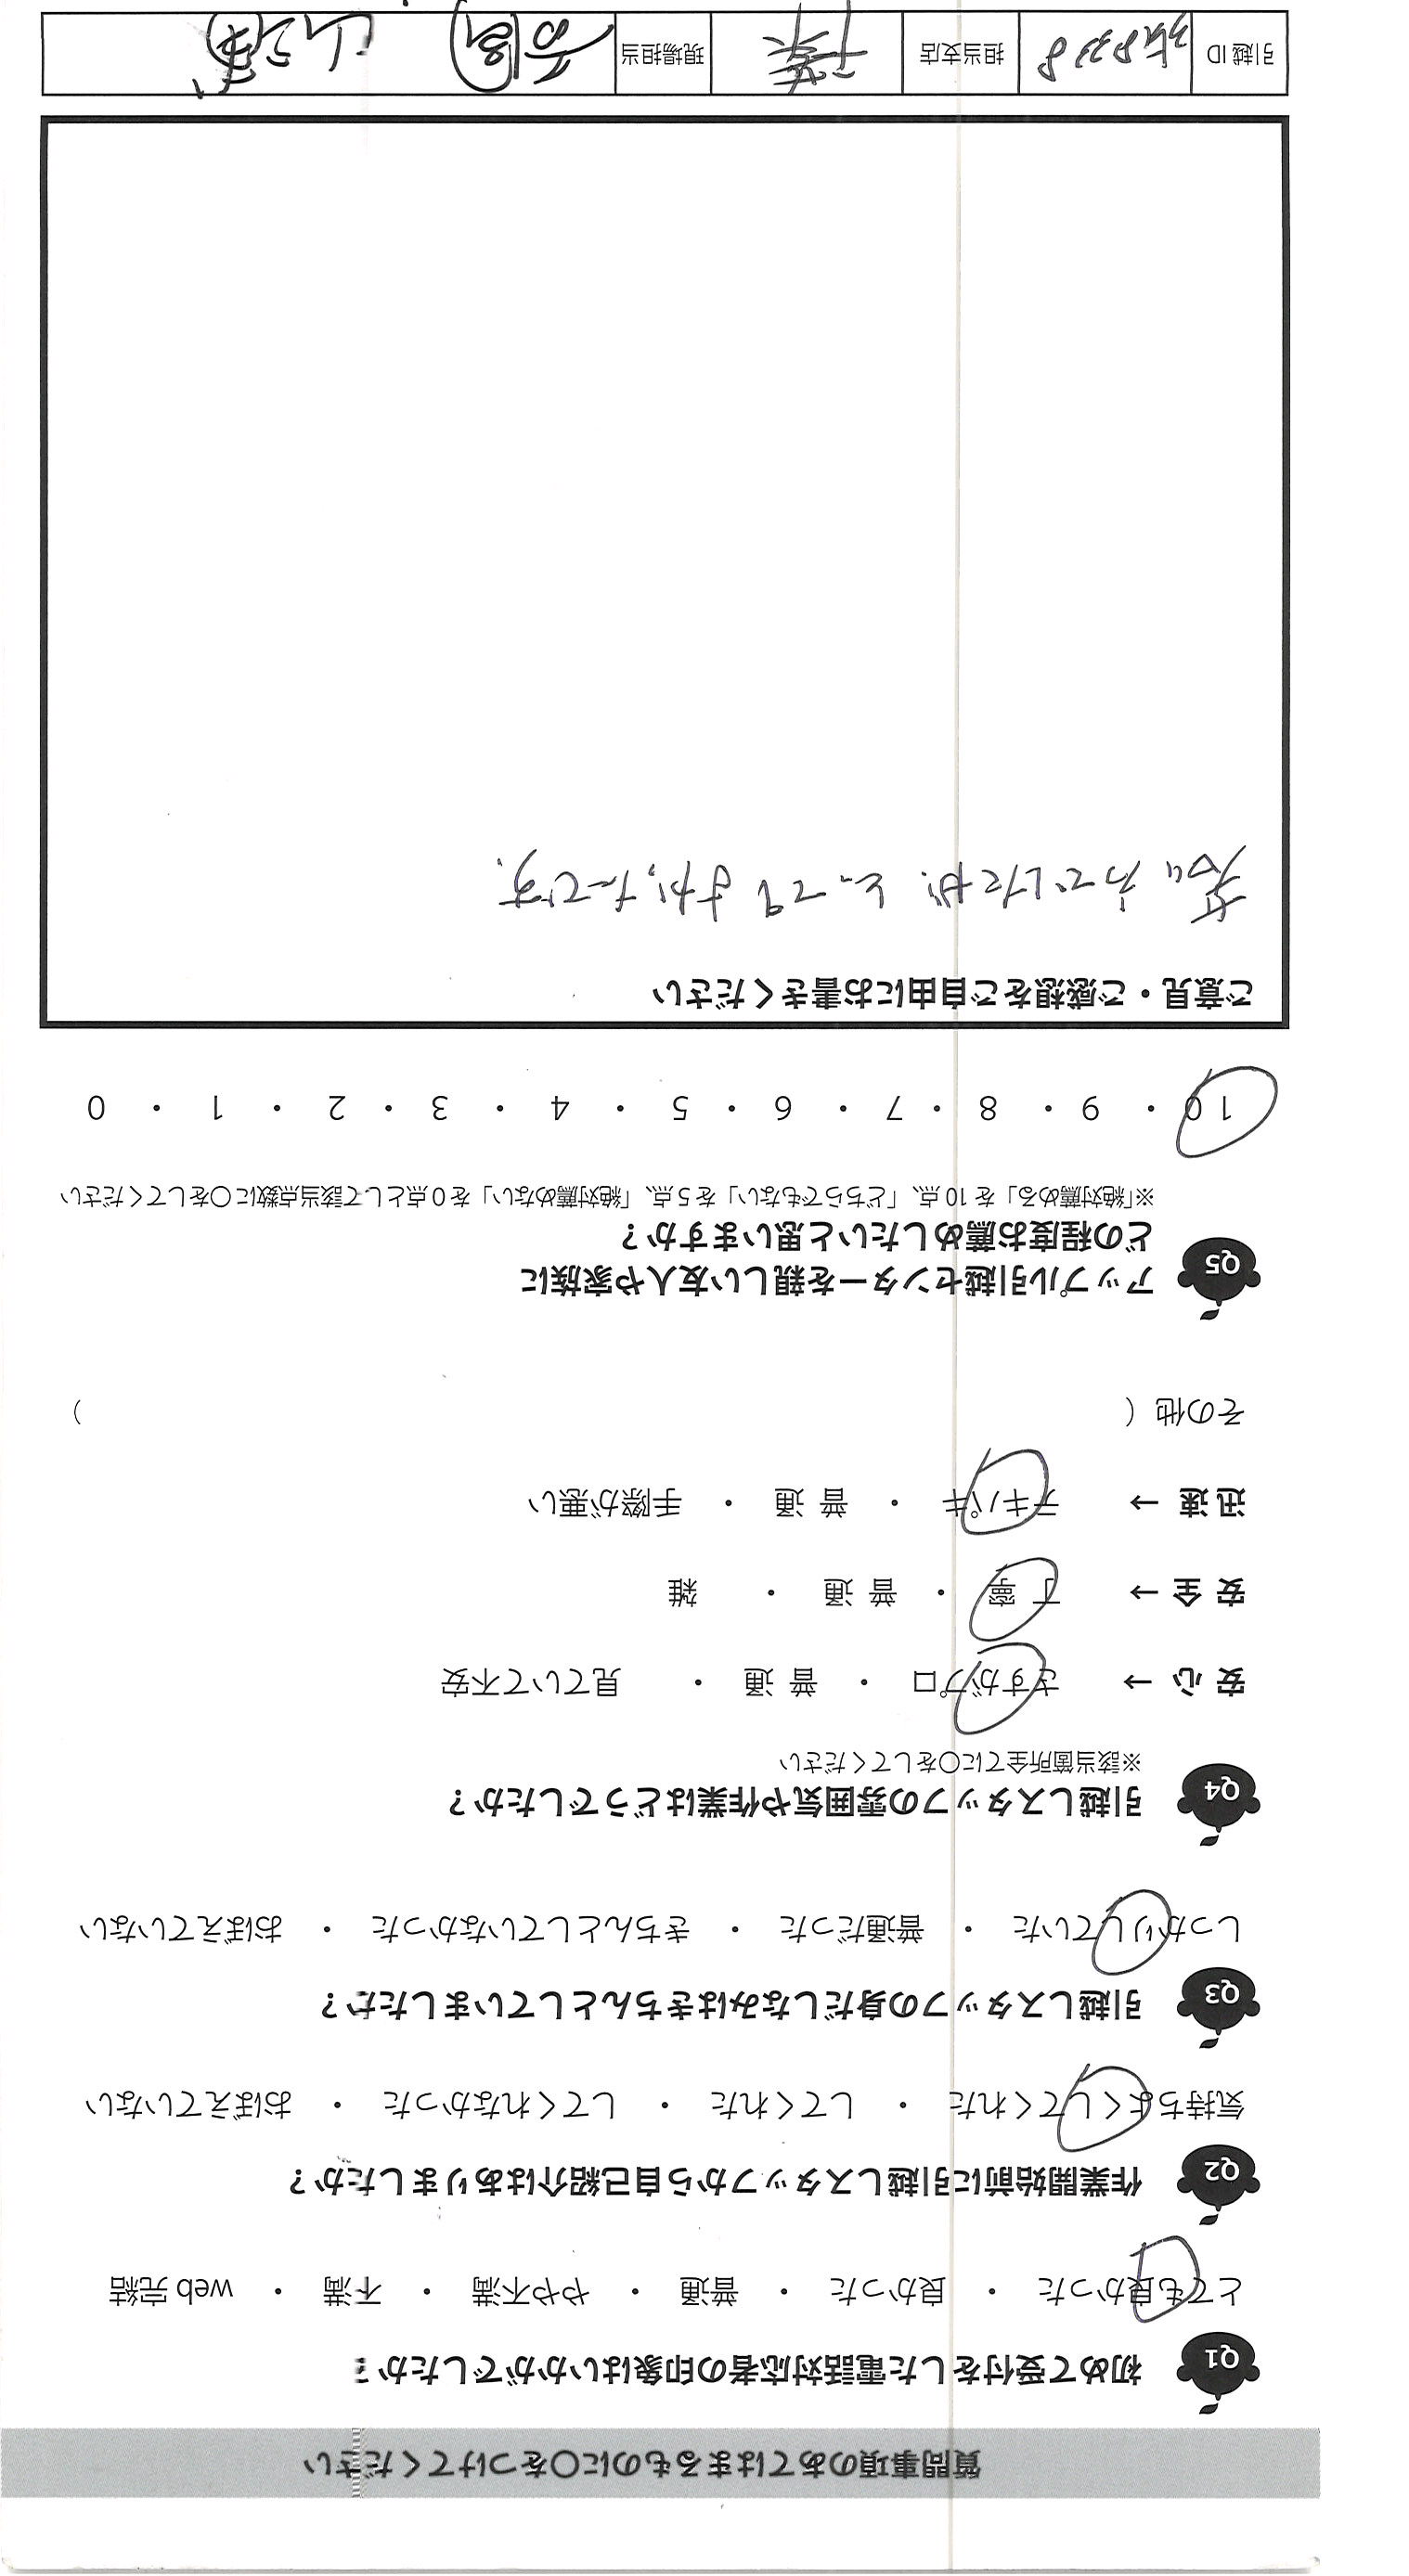 質問事項のあてはまるものに〇をつけてください
Q1 初めて受付をした電話対応者の印象はいかがでしたか？
とても良かった ・ 良かった ・ 普通 ・ やや不満 ・ 不満 ・ web 完結
Q2 作業開始前に引越しスタッフから自己紹介はありましたか？
気持ちよくしてくれた ・ してくれた ・ してくれなかった ・ おぼえていない
Q3 引越しスタッフの身だしなみはきちんとしていましたか？
しっかりしていた ・ 普通だった ・ きちんとしていなかった ・ おぼえていない
Q4 引越しスタッフの雰囲気や作業はどうでしたか？
※該当箇所全てに〇をしてください
安心 → さすがプロ ・ 普通 ・ 見ていて不安
安全 → 丁寧 ・ 普通 ・ 雑
迅速 → テキパキ ・ 普通 ・ 手際が悪い
その他（ ）
Q5 アップル引越センターを親しい友人や家族に
どの程度お薦めしたいと思いますか？
※「絶対薦める」を 10 点、「どちらでもない」を 5 点、「絶対薦めない」を 0 点として該当点数に〇をしてください
10 ・ 9 ・ 8 ・ 7 ・ 6 ・ 5 ・ 4 ・ 3 ・ 2 ・ 1 ・ 0
ご意見・ご感想をご自由にお書きください
若い方でしたが、とってもよかったです。
引越 ID 担当支店 千葉 現場担当